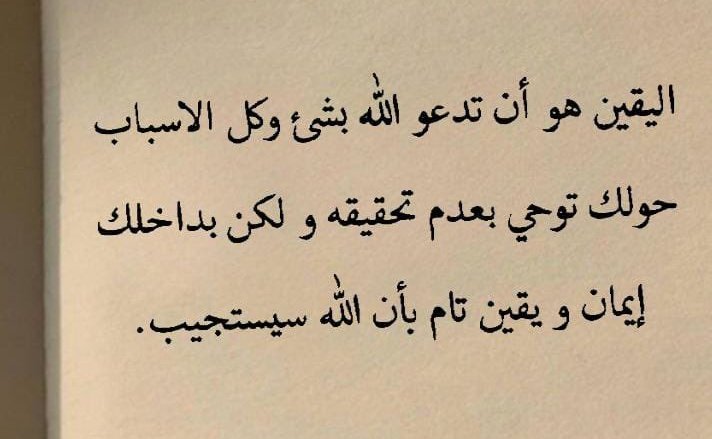 اليقين هو أن تدعو الله بشئ وكل الاسباب
حولك توحي بعدم تحقيقه و لكن بداخلك
إيمان و يقين تام بأن الله سيستجيب.